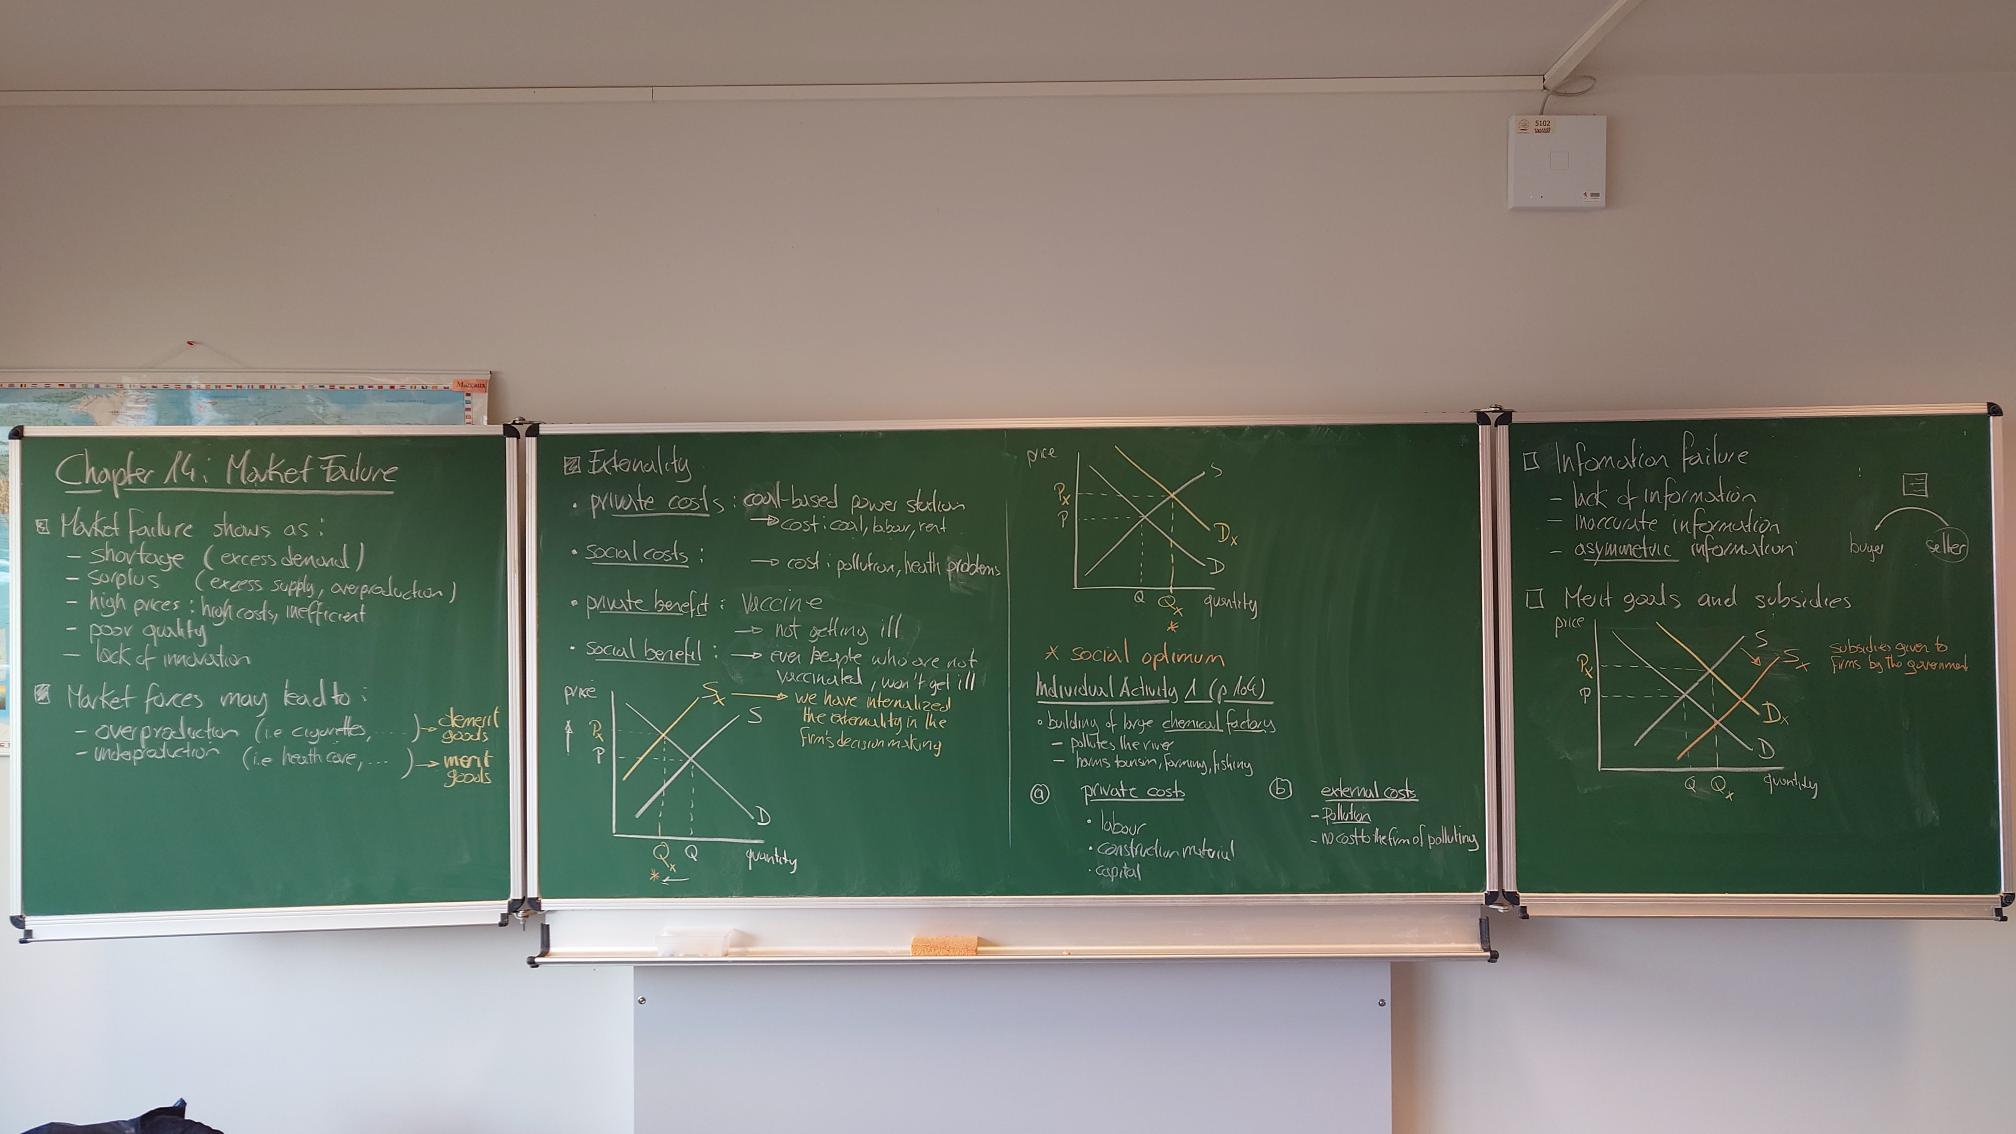 Marcaux
5102
Chapter 14: Market Failure
Market failure shows as:
- shortage (excess demand)
- surplus (excess supply, overproduction)
- high prices: high costs, inefficient
- poor quality
- lack of innovation
Market forces may lead to:
- overproduction (i.e cigarettes, ....) → demerit goods
- underproduction (i.e health care, ...) → merit goods
Externality
• private costs: coal-based power station
→ cost: coal, labour, rent
• social costs:
→ cost: pollution, heath problems
• private benefit: vaccine
→ not getting ill
• social benefit: → even people who are not
vaccinated, won't get ill
price
Sx → we have internalized
the externality in the
firm's decision making
S
Px
P
D
Qx Q quantity
*
price
S
Px
P
Dx
D
Q Qx quantity
*
* social optimum
Individual Activity 1 (p 104)
• building of large chemical factory
- pollutes the river
- harms tourism, farming, fishing
a private costs
• labour
• construction material
• capital
b external costs
- pollution
- no cost to the firm of polluting
Infomation failure
- lack of information
- inaccurate information
- asymmetric information
buyer seller
Merit goods and subsidies
price
S
Sx
subsidies given to
firms by the government
Px
P
Dx
D
Q Qx quantity